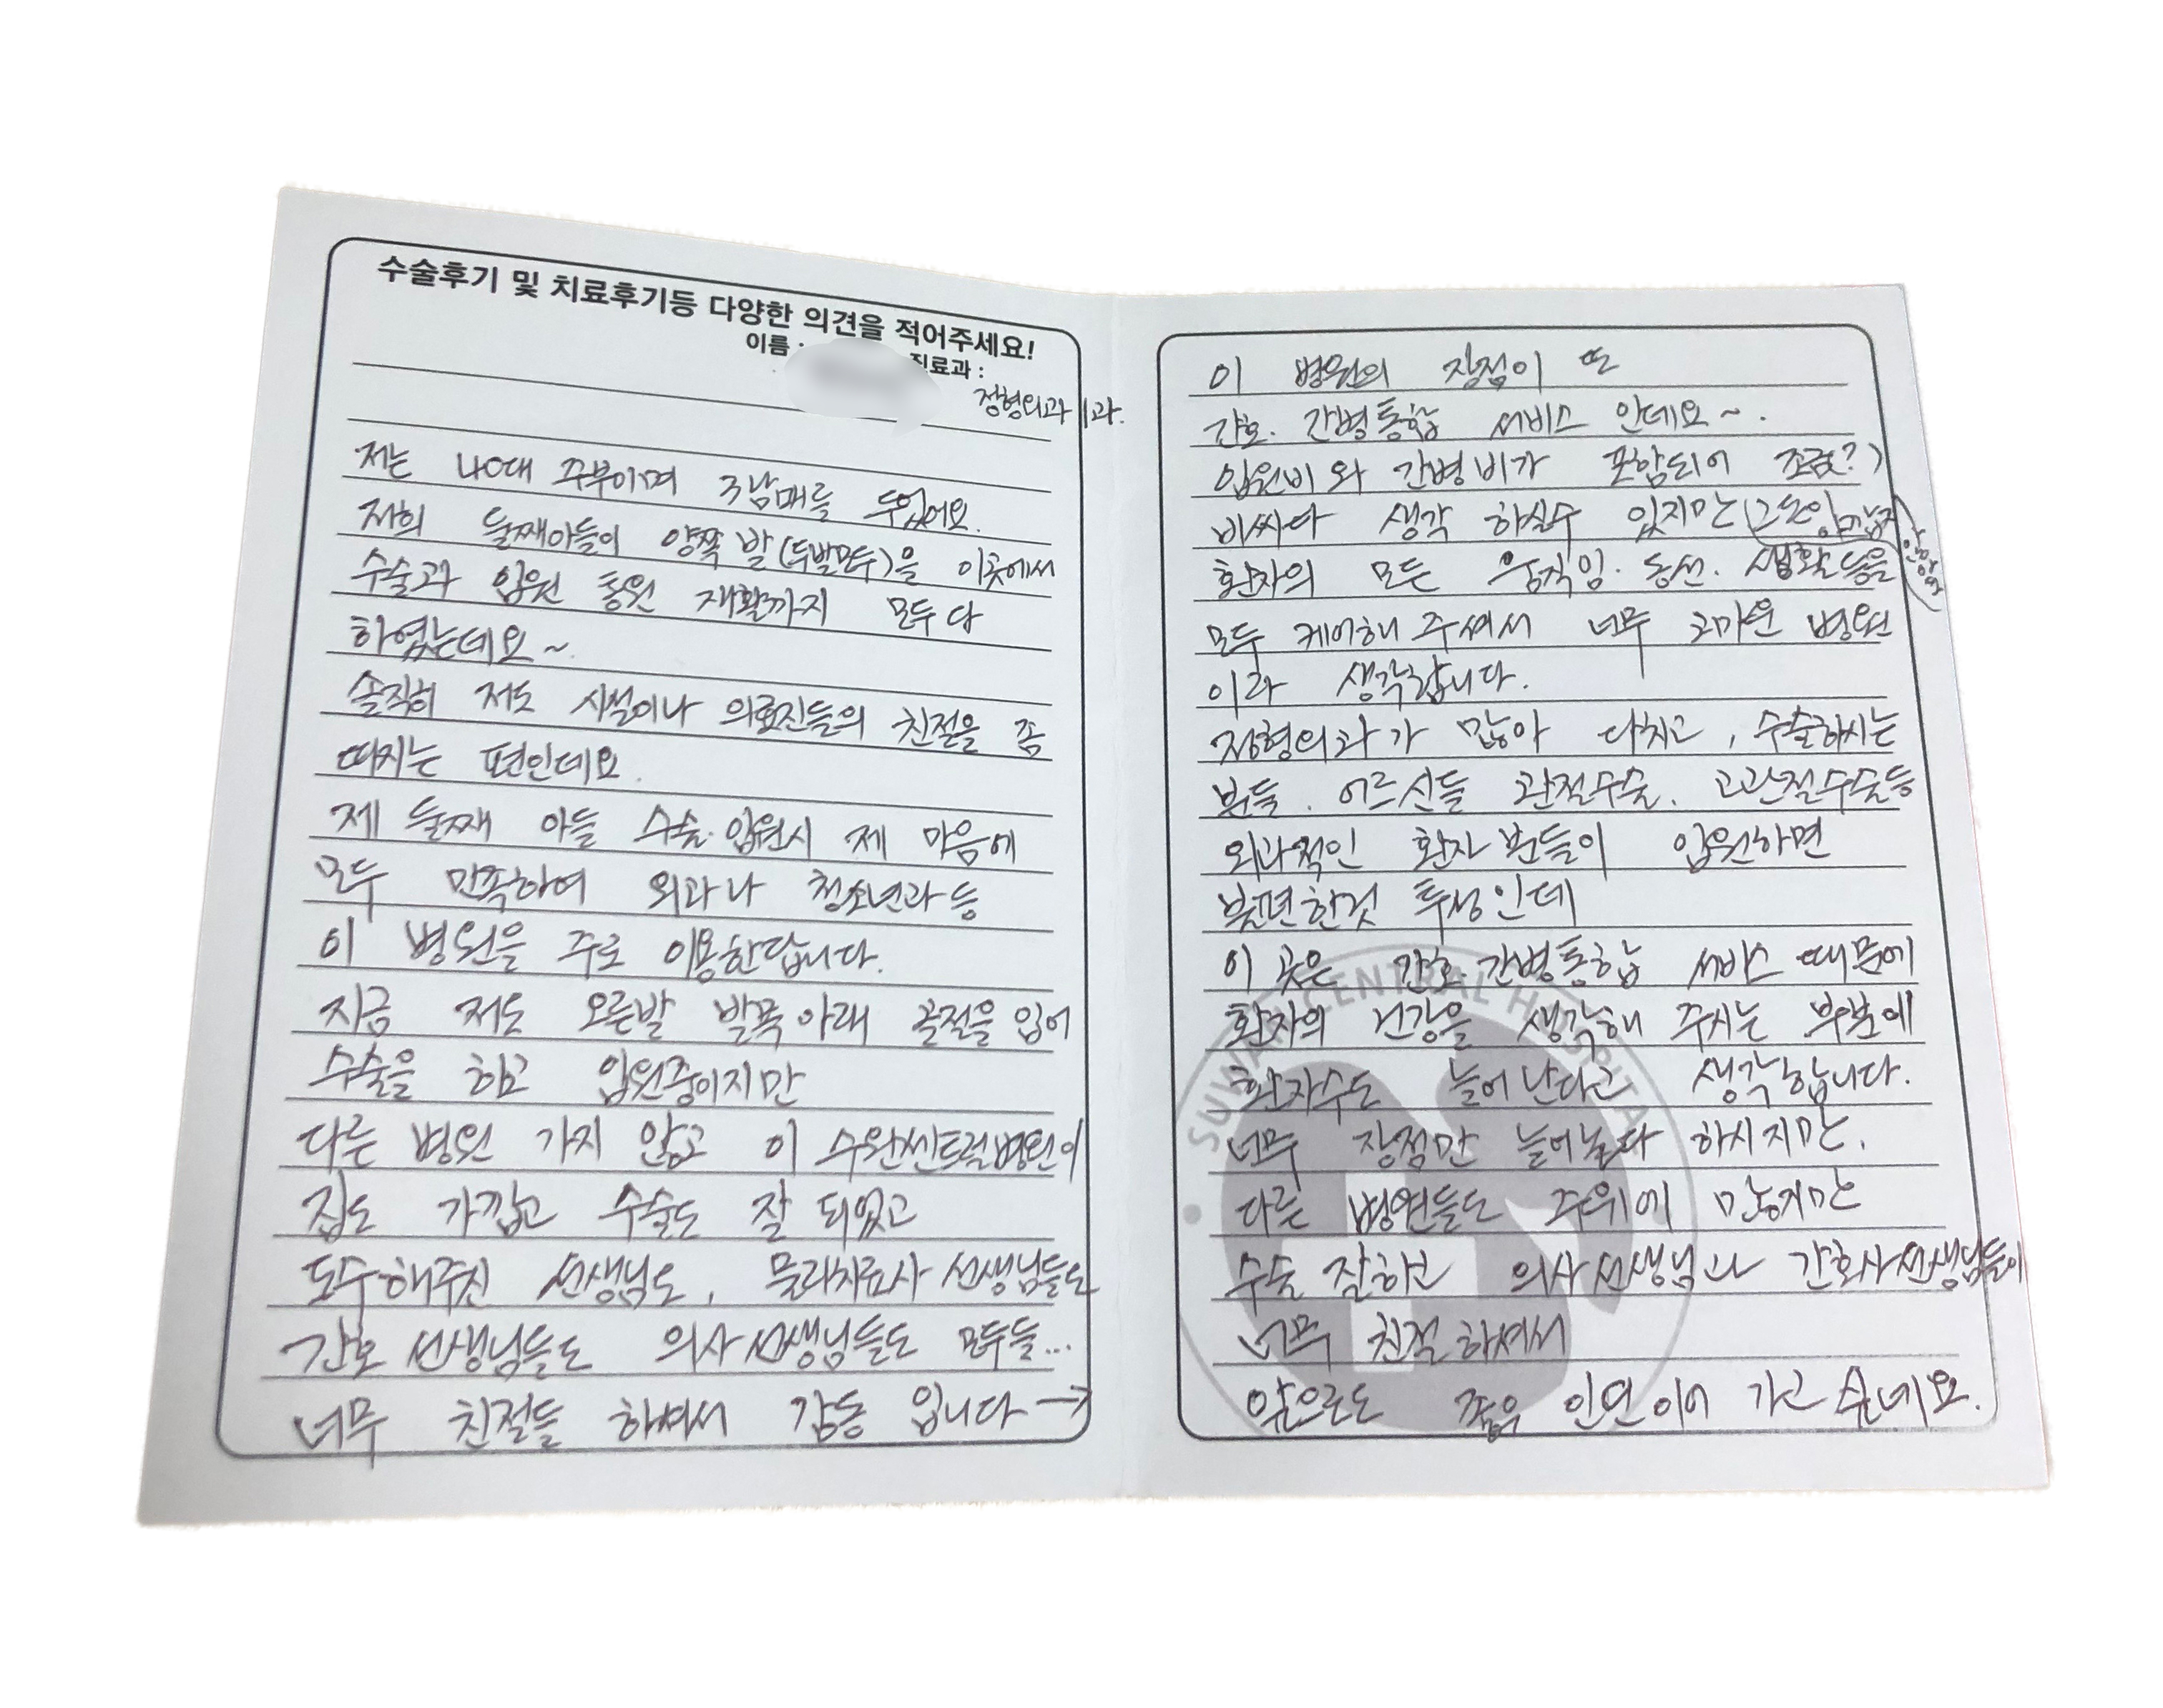 수술후기 및 치료후기등 다양한 의견을 적어주세요!
이름 : 진료과 :
정형외과 1과.
저는 40대 주부이며 3남매를 두었어요.
저희 둘째아들이 양쪽 발(두발모두)을 이곳에서
수술과 입원 통원 재활까지 모두 다
하였는데요~.
솔직히 저도 시설이나 의료진들의 친절을 좀
따지는 편인데요.
제 둘째 아들 수술·입원시 제 마음에
모두 만족하여 외과나 청소년과 등
이 병원을 주로 이용한답니다.
지금 저도 오른발 발목아래 골절을 입어
수술을 하고 입원중이지만
다른 병원 가지 않고 이 수완센트럴병원이
집도 가깝고 수술도 잘 되었고
도수해주신 선생님도, 물리치료사 선생님들도
간호 선생님들도 의사선생님들도 모두들...
너무 친절들 하셔서 감동 입니다 →
이 병원의 장점이 또
간호. 간병통합 서비스 인데요~.
입원비와 간병비가 포함되어 조금?)
비싸다 생각 하실수 있지만
환자의 모든 움직임. 동선. 생활등을
모두 케어해 주셔서 너무 고마운 병원
이라 생각합니다.
정형외과가 많아 다치고, 수술하시는
분들. 어르신들 관절수술. 고관절수술등
외과적인 환자분들이 입원하면
불편한것 투성인데
이 곳은 간호.간병통합 서비스 때문에
환자의 건강을 생각해 주시는 부분에
환자수도 늘어난다고 생각합니다.
너무 장점만 늘어놓다 하시지만.
다른 병원들도 주위에 많지만
수술 잘하고 의사선생님과 간호사선생님들이
너무 친절하셔서
앞으로도 쭈욱 인연이어 가고 싶네요.
SUWAN CENTRAL HOSPITAL